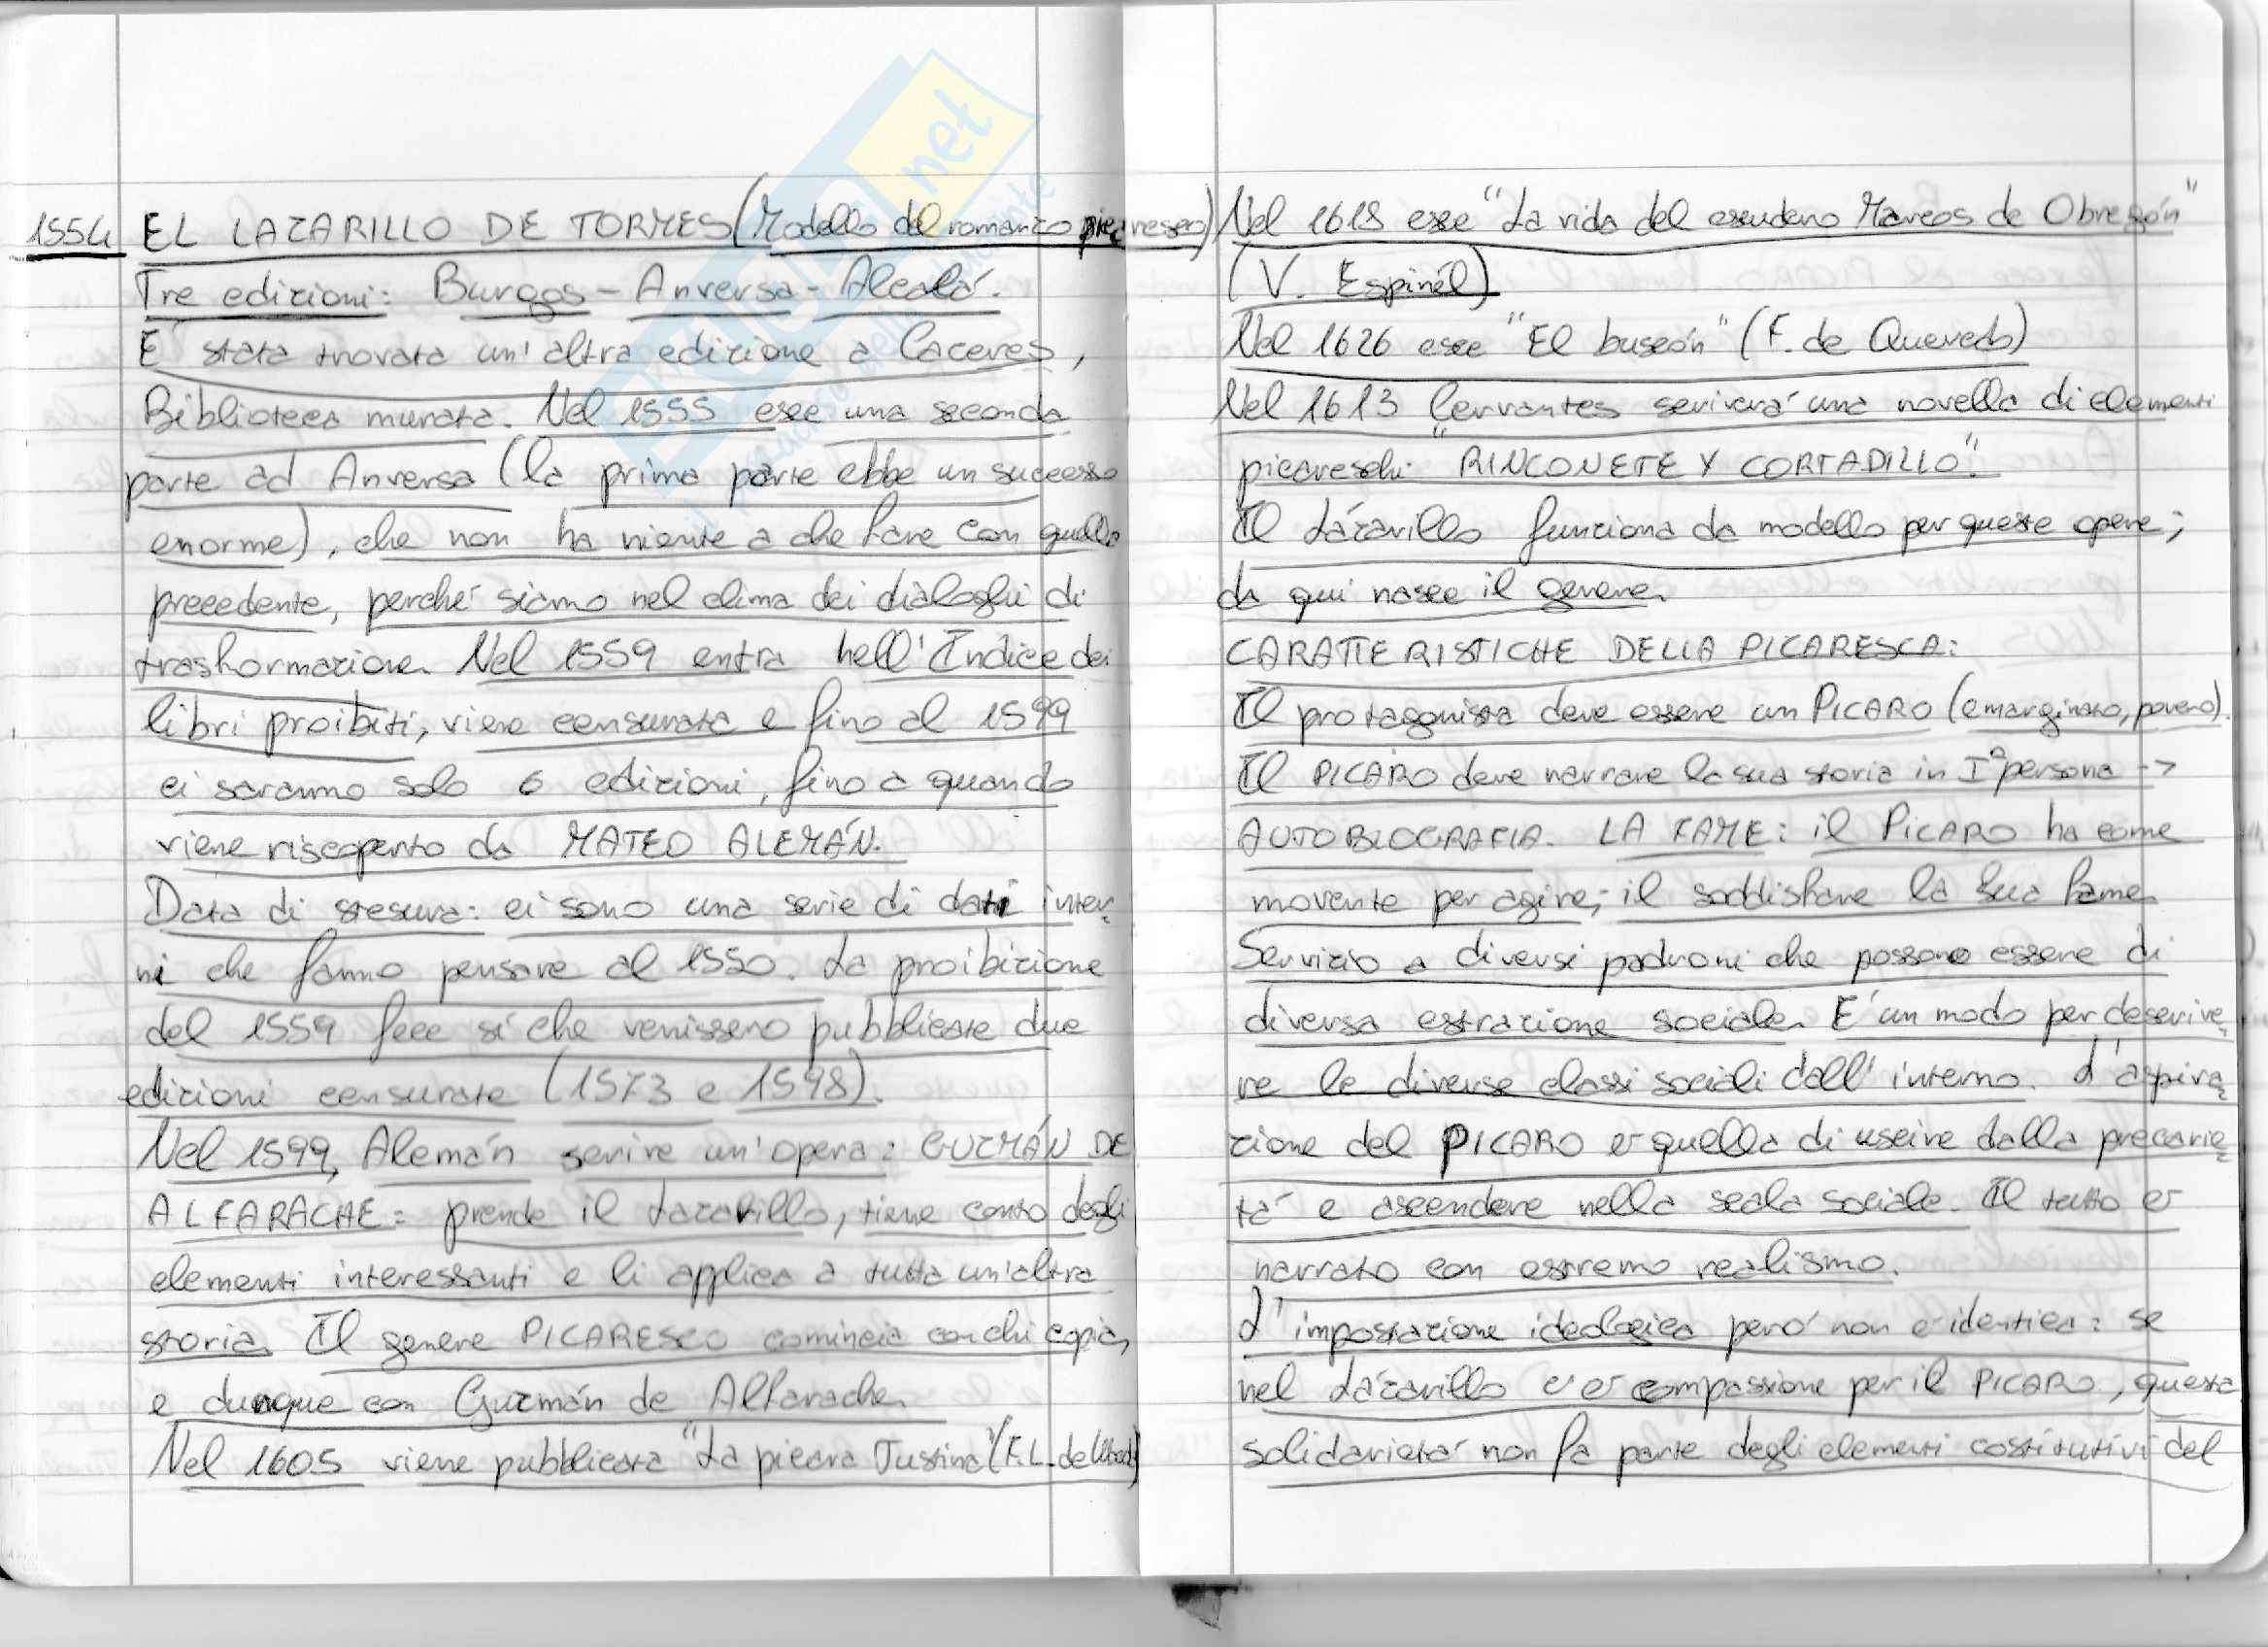 1554 EL LAZARILLO DE TORMES (Modello del romanzo picaresco)
Tre edizioni: Burgos - Anversa - Alcalá.
E' stata trovata un'altra edizione a Caceres,
Biblioteca murata. Nel 1555 esce una seconda
parte ad Anversa (la prima parte ebbe un successo
enorme), che non ha niente a che fare con quella
precedente, perché siamo nel clima dei dialoghi di
trasformazione. Nel 1559 entra nell'Indice dei
libri proibiti, viene censurata e fino al 1599
ci saranno solo 6 edizioni, fino a quando
viene riscoperto da MATEO ALEMÁN.
Data di stesura: ci sono una serie di dati inter-
ni che fanno pensare al 1550. La proibizione
del 1559 fece sì che venissero pubblicate due
edizioni censurate (1573 e 1598).
Nel 1599, Alemán scrive un'opera: GUZMÁN DE
ALFARACHE: prende il Lazarillo, tiene conto degli
elementi interessanti e li applica a tutta un'altra
storia. Il genere PICARESCO comincia con chi copia,
e dunque con Guzmán de Alfarache.
Nel 1605 viene pubblicata "La picara Justina" (F.L. de Ubeda)
Nel 1618 esce "La vida del escudero Marcos de Obregón"
(V. Espinél)
Nel 1626 esce "El buscón" (F. de Quevedo)
Nel 1613 Cervantes scriverà una novella di elementi
picareschi "RINCONETE Y CORTADILLO".
Il Lázarillo funziona da modello per queste opere;
da qui nasce il genere.
CARATTERISTICHE DELLA PICARESCA:
Il protagonista deve essere un PICARO (emarginato, povero).
Il PICARO deve narrare la sua storia in Iª persona ->
AUTOBIOGRAFIA. LA FAME: il PICARO ha come
movente per agire; il soddisfare la sua fame.
Servizio a diversi padroni che possono essere di
diversa estrazione sociale. E' un modo per descrive-
re le diverse classi sociali dall'interno. L'aspira-
zione del PICARO è quella di uscire dalla precarie-
tà e ascendere nella scala sociale. Il tutto è
narrato con estremo realismo.
L'impostazione ideologica però non è identica: se
nel Lázarillo c'è compassione per il PICARO, questa
solidarietà non fa parte degli elementi costitutivi del
net